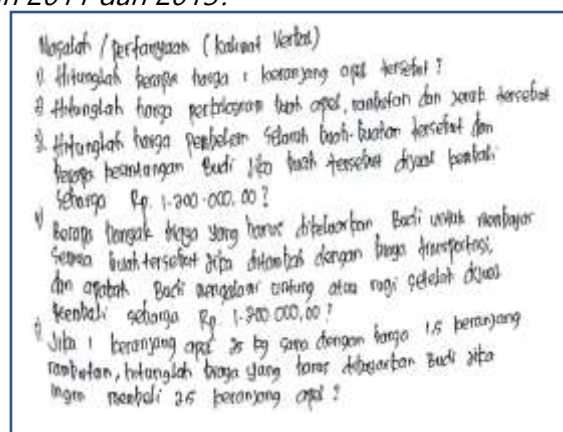 Masalah / pertanyaan (kalimat Verbal)
1. Hitunglah berapa harga 1 keranjang apel tersebut ?
2. Hitunglah harga perkilogram buah apel, rambutan dan jeruk tersebut
3. Hitunglah harga pembelian seluruh buah-buahan tersebut dan
berapa keuntungan Budi jika buah tersebut dijual kembali
seharga Rp. 1.200.000,00 ?
4. Berapa banyak biaya yang harus dikeluarkan Budi untuk membayar
semua buah tersebut jika ditambah dengan biaya transportasi,
dan apakah Budi mengalami untung atau rugi setelah dijual
kembali seharga Rp 1.200.000,00 ?
Jika 1 keranjang apel 25 kg sama dengan harga 1.5 keranjang
rambutan, hitunglah biaya yang harus dikeluarkan Budi jika
ingin membeli 2.5 keranjang apel ?